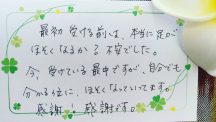 最初受ける前は、本当に足が
ほそくなるか？不安でした。
今、受けている最中ですが、自分でも
分かる位に、ほそくなっていってます。
感謝！感謝です。